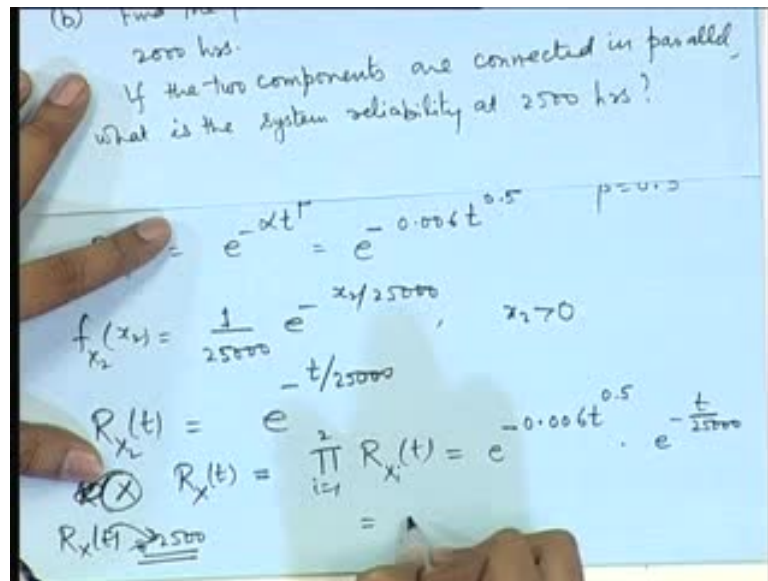 (b) Find the
2000 hrs.
If the two components are connected in parallel,
what is the system reliability at 2500 hrs?
= e^{-αt^β} = e^{-0.006t^{0.5}} β=0.5
f_{X_2}(x_2) = 1/25000 e^{-x_2/25000}, x_2>0
R_{X_2}(t) = e^{-t/25000}
(X) R_X(t) = ∏_{i=1}^{2} R_{X_i}(t) = e^{-0.006t^{0.5}} . e^{-t/25000}
R_X(t) 2500 =